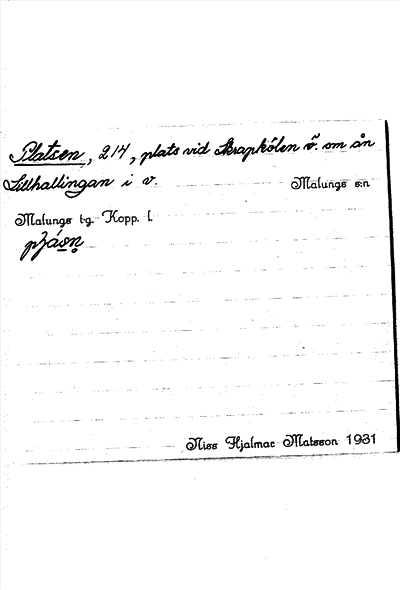 Platsen, 214, plats vid Skrapkölen v̄. om ån
Lillhallingan i v. Malungs s:n
Malungs t-g. Kopp. l.
Niss Hjalmar Matsson 1931